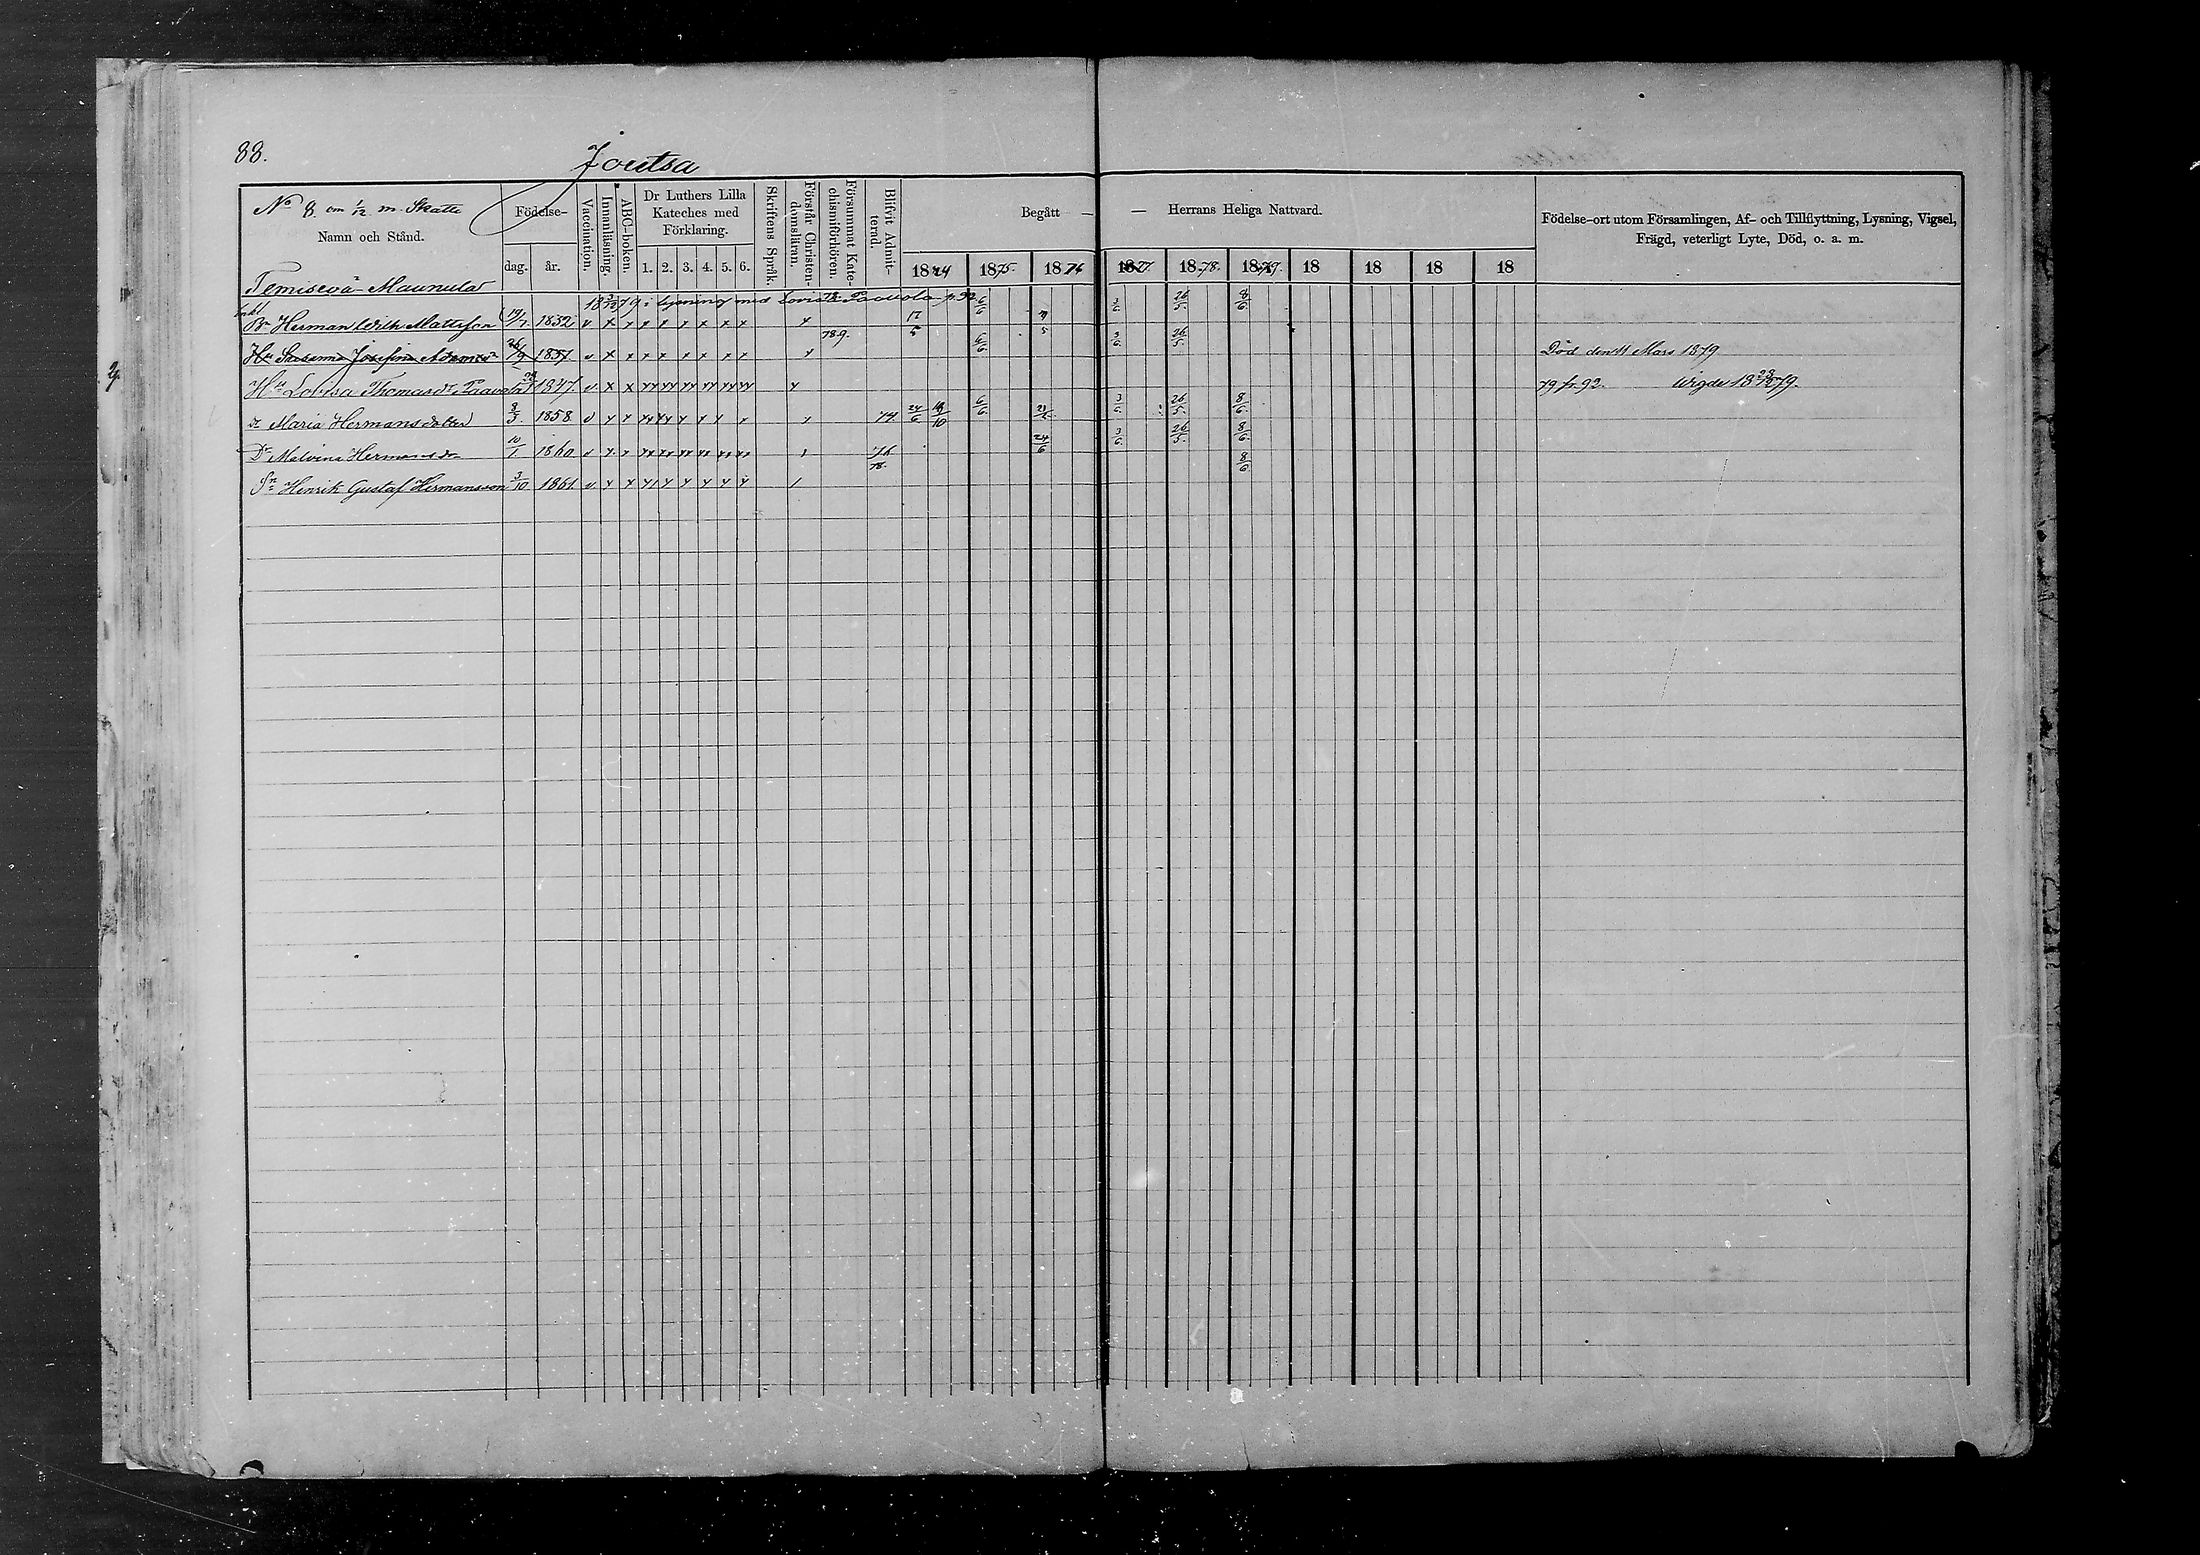 88.
Joutsa
No 8. om 1/12 m. Skatte
Namn och Stånd.
Födelse-
dag. år.
Vaccination.
Innanläsning.
ABC-boken.
Dr Luthers Lilla Kateches med Förklaring.
1. 2. 3. 4. 5. 6.
Skriftens Språk.
Förstår Christendomsläran.
Försummat Katechismiförhören.
Blifvit Admitterad.
Begått — — Herrans Heliga Nattvard.
1874 1875. 1876 1877. 1878. 1879. 18 18 18 18
Födelse-ort utom Församlingen, Af- och Tillflyttning, Lysning, Vigsel,
Frägd, veterligt Lyte, Död, o. a. m.
Temisevä Maunula
i lysning med Lovisa Paavola fr. 92
Bn Herman Wilh Mattsson 19/7 1832 v x x x x x x x x x 17/5 6/6 3/6 26/5. 8/6.
78.9.
Hu Susanna Josefina Adamsdr 26/9 1831 v x x x x x x x x x 6/6 3/6. 26/5. Död den 11 Mars 1879
Hu Lovisa Thomasdr Paavola 1847. v x x xx xx xx xx xx xx x 79 fr. 92. Vigde 18 28/12 79.
dr Maria Hermansdotter 3/3. 1858 v x x 74 24/6 6/6. 3/6. 26/5. 8/6.
Dr Malvina Hermansdr 10/1 1860 v x x 76 24/6 3/6. 26/5. 8/6.
Sn Henrik Gustaf Hermansson 3/10 1861. v x x 78. 8/6